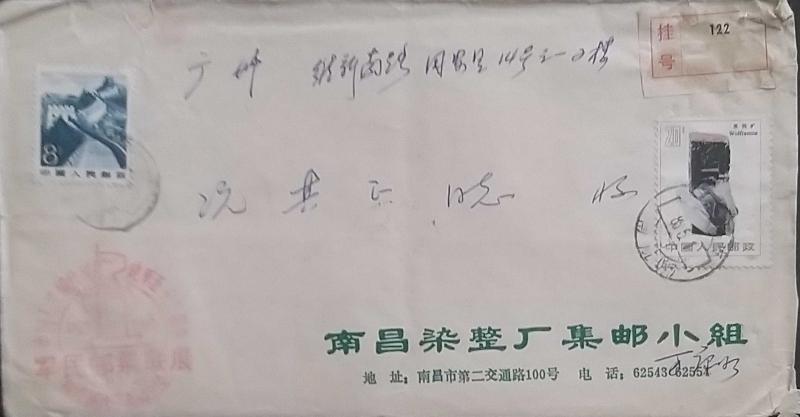 挂号 122
广州 维新南路 同安里 14号之一 2楼
8
中国人民邮政
20分
黑钨矿
Wolframite
中国人民邮政
况 其 正 同志 收
南昌染整厂集邮小组
地 址：南昌市第二交通路100号 电 话：62543 62554